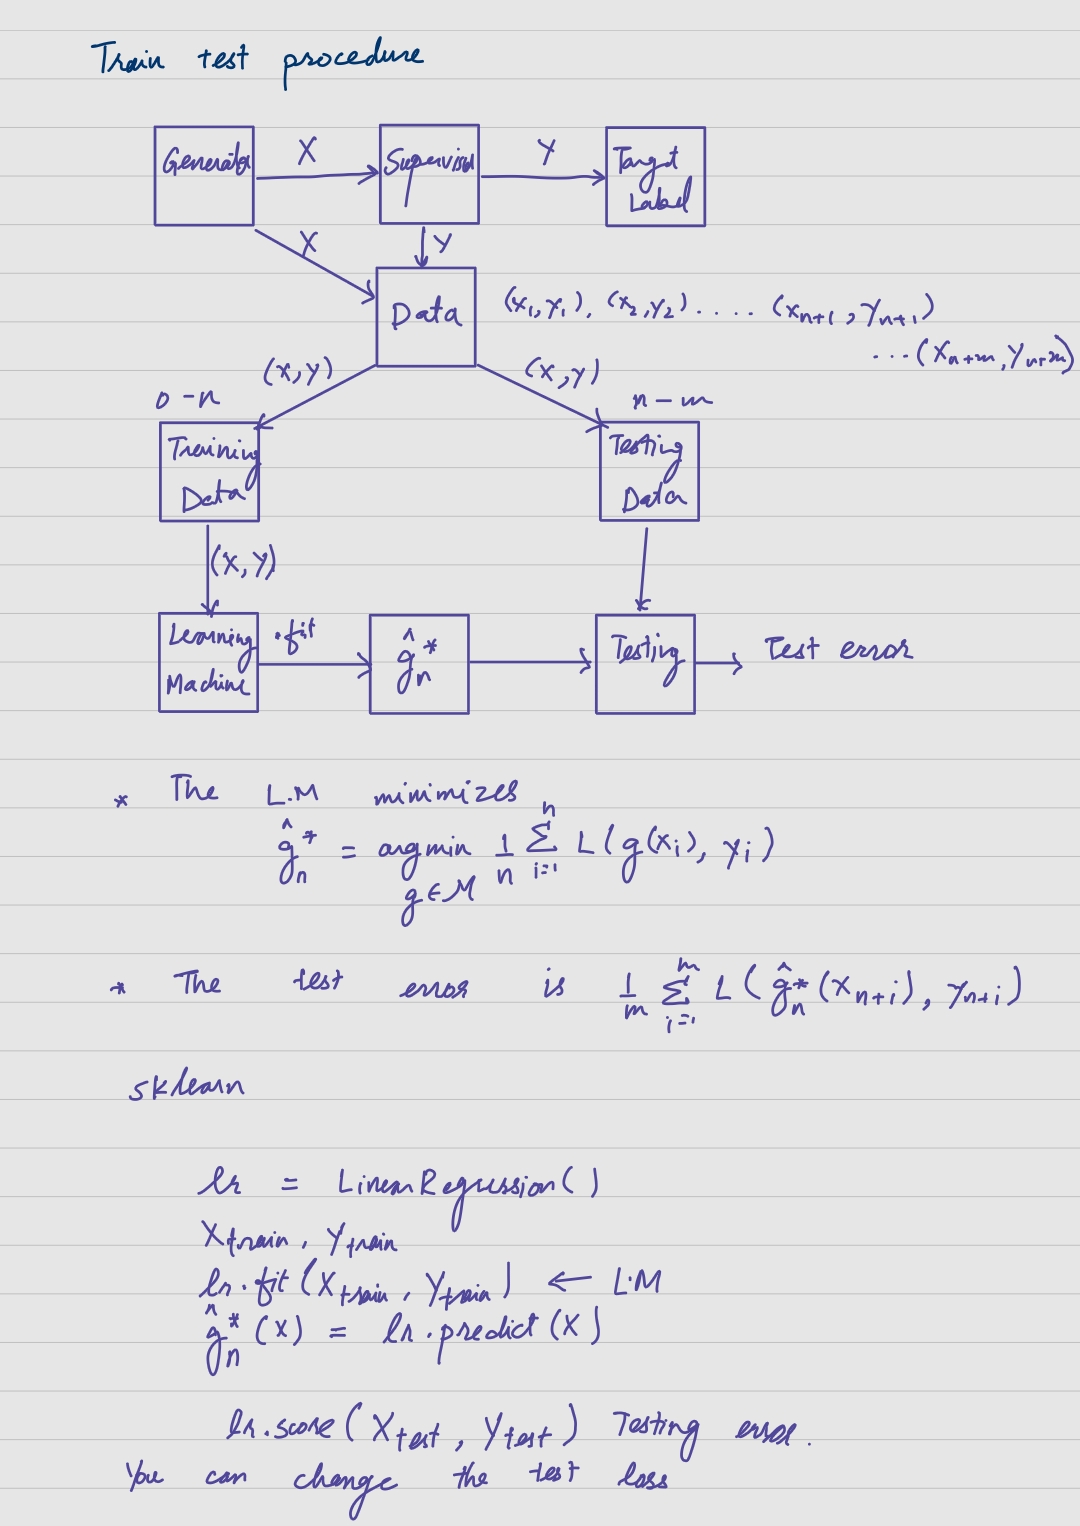 Train test procedure
Generator X Supervisor Y Target Label
X Y
Data (x₁,y₁), (x₂,y₂) ..... (xₙ₊₁, yₙ₊₁)
...(xₙ₊ₘ, yₙ₊ₘ)
(x,y) (x,y)
0 - n n - m
Training Data Testing Data
(x,y)
Learning Machine .fit ĝₙ* Testing Test error
* The L.M minimizes
ĝₙ* = argmin 1/n Σⁿᵢ₌₁ L(g(xᵢ), yᵢ)
g ∈ M
* The test error is 1/m Σᵐᵢ₌₁ L(ĝₙ*(xₙ₊ᵢ), yₙ₊ᵢ)
sklearn
lr = LinearRegression()
X_train, Y_train
lr.fit(X_train, Y_train) ← L.M
ĝₙ*(x) = lr.predict(X)
lr.score(X_test, Y_test) Testing error.
You can change the test loss